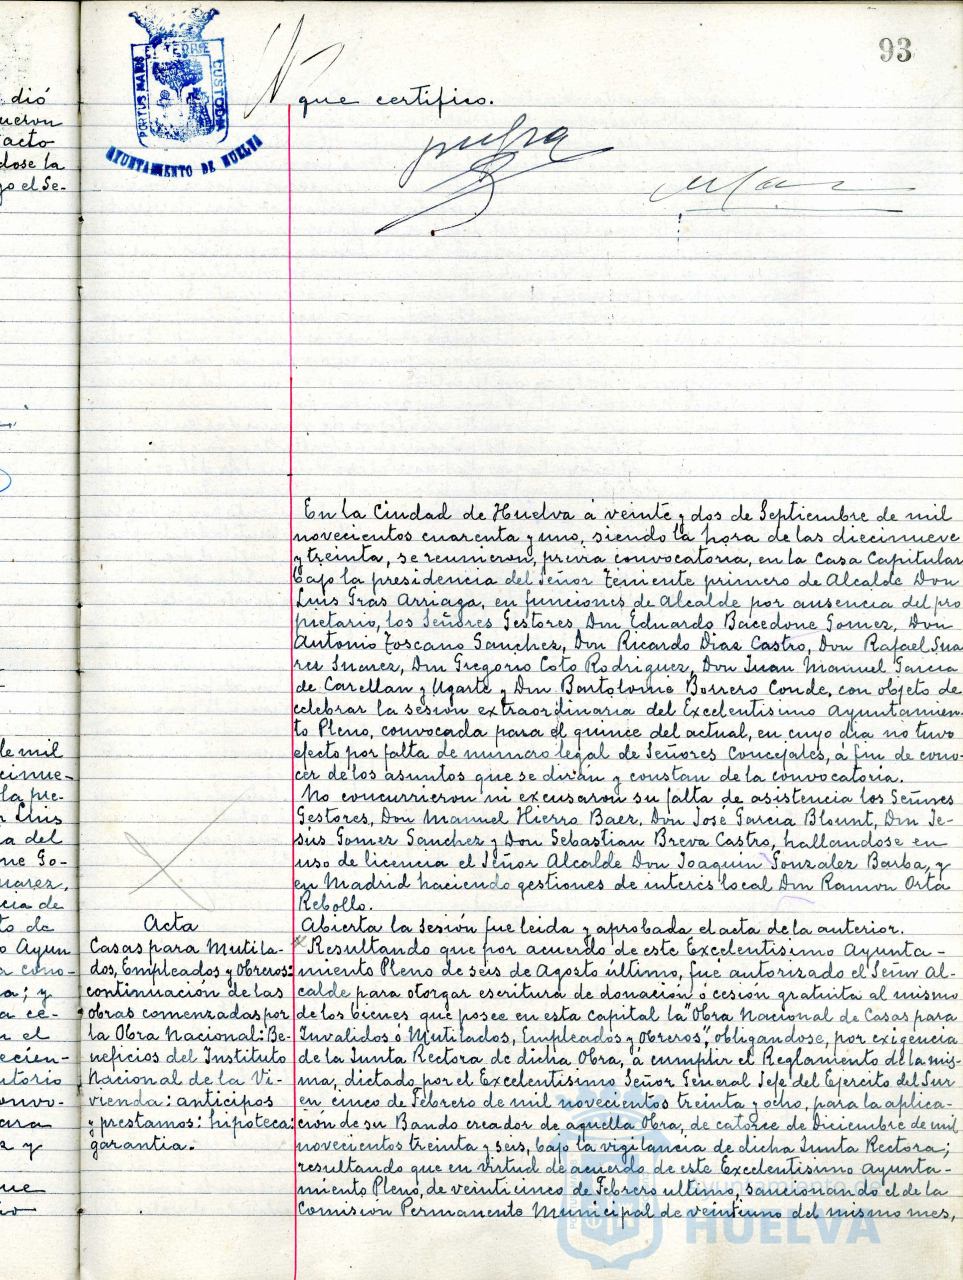 93
PORTUS MARIS ET TERRE CUSTODIA
AYUNTAMIENTO DE HUELVA
que certifico.
En la Ciudad de Huelva á veinte y dos de Septiembre de mil
novecientos cuarenta y uno, siendo la hora de las diecinueve
y treinta, se reunieron, previa convocatoria, en la Casa Capitular
bajo la presidencia del Señor Teniente primero de Alcalde Don
Luis Gras Arriaga, en funciones de Alcalde por ausencia del pro
pietario, los Señores Gestores Don Eduardo Bacedone Gomez, Don
Antonio Toscano Sanchez, Don Ricardo Dias Castro, Don Rafael Sua
rez Suarez, Don Gregorio Coto Rodriguez, Don Juan Manuel Garcia
de Carellan y Ugarte y Don Bartolomé Borrero Conde, con objeto de
celebrar la sesión extraordinaria del Excelentisimo Ayuntamien-
to Pleno, convocada para el quince del actual, en cuyo dia no tuvo
efecto por falta de numero legal de Señores Concejales, á fin de cono-
cer de los asuntos que se dirán y constan de la convocatoria.
No concurrieron ni excusaron su falta de asistencia los Señores
Gestores, Don Manuel Hierro Baez, Don José Garcia Blount, Don Je-
sús Gomez Sanchez y Don Sebastian Breva Castro, hallandose en
uso de licencia el Señor Alcalde Don Joaquin González Barba, y
en Madrid haciendo gestiones de interés local Don Ramon Orta
Rebollo.
Acta
Abierta la sesión fue leida y aprobada el acta de la anterior.
Casas para Mutila-
dos, Empleados y obreros:
continuación de las
obras comenzadas por
la Obra Nacional: Be-
neficios del Instituto
Nacional de la Vi-
vienda: anticipos
y prestamos: hipoteca:
garantia.
Resultando que por acuerdo de este Excelentisimo Ayunta-
miento Pleno de seis de Agosto último, fue autorizado el Señor Al-
calde para otorgar escritura de donación ó cesión gratuita al mismo
de los bienes que posee en esta capital la "Obra Nacional de Casas para
Invalidos ó Mutilados, Empleados y Obreros", obligandose, por exigencia
de la Junta Rectora de dicha Obra, á cumplir el Reglamento de la mis-
ma, dictado por el Excelentisimo Señor General Jefe del Ejercito del Sur
en cinco de Febrero de mil novecientos treinta y ocho, para la aplica-
ción de su Bando creador de aquella Obra, de catorce de Diciembre de mil
novecientos treinta y seis, bajo la vigilancia de dicha Junta Rectora;
resultando que en virtud de acuerdo de este Excelentisimo Ayunta-
miento Pleno, de veinticinco de Febrero ultimo, sancionando el de la
Comision Permanente Municipal de veintiuno del mismo mes,
Ayuntamiento de
HUELVA
dió
ueron
acto
dose la
jo el Se-
de mil
cinue-
Luis
a del
me Go-
uarez,
cia de
to de
o Ayun
a cono-